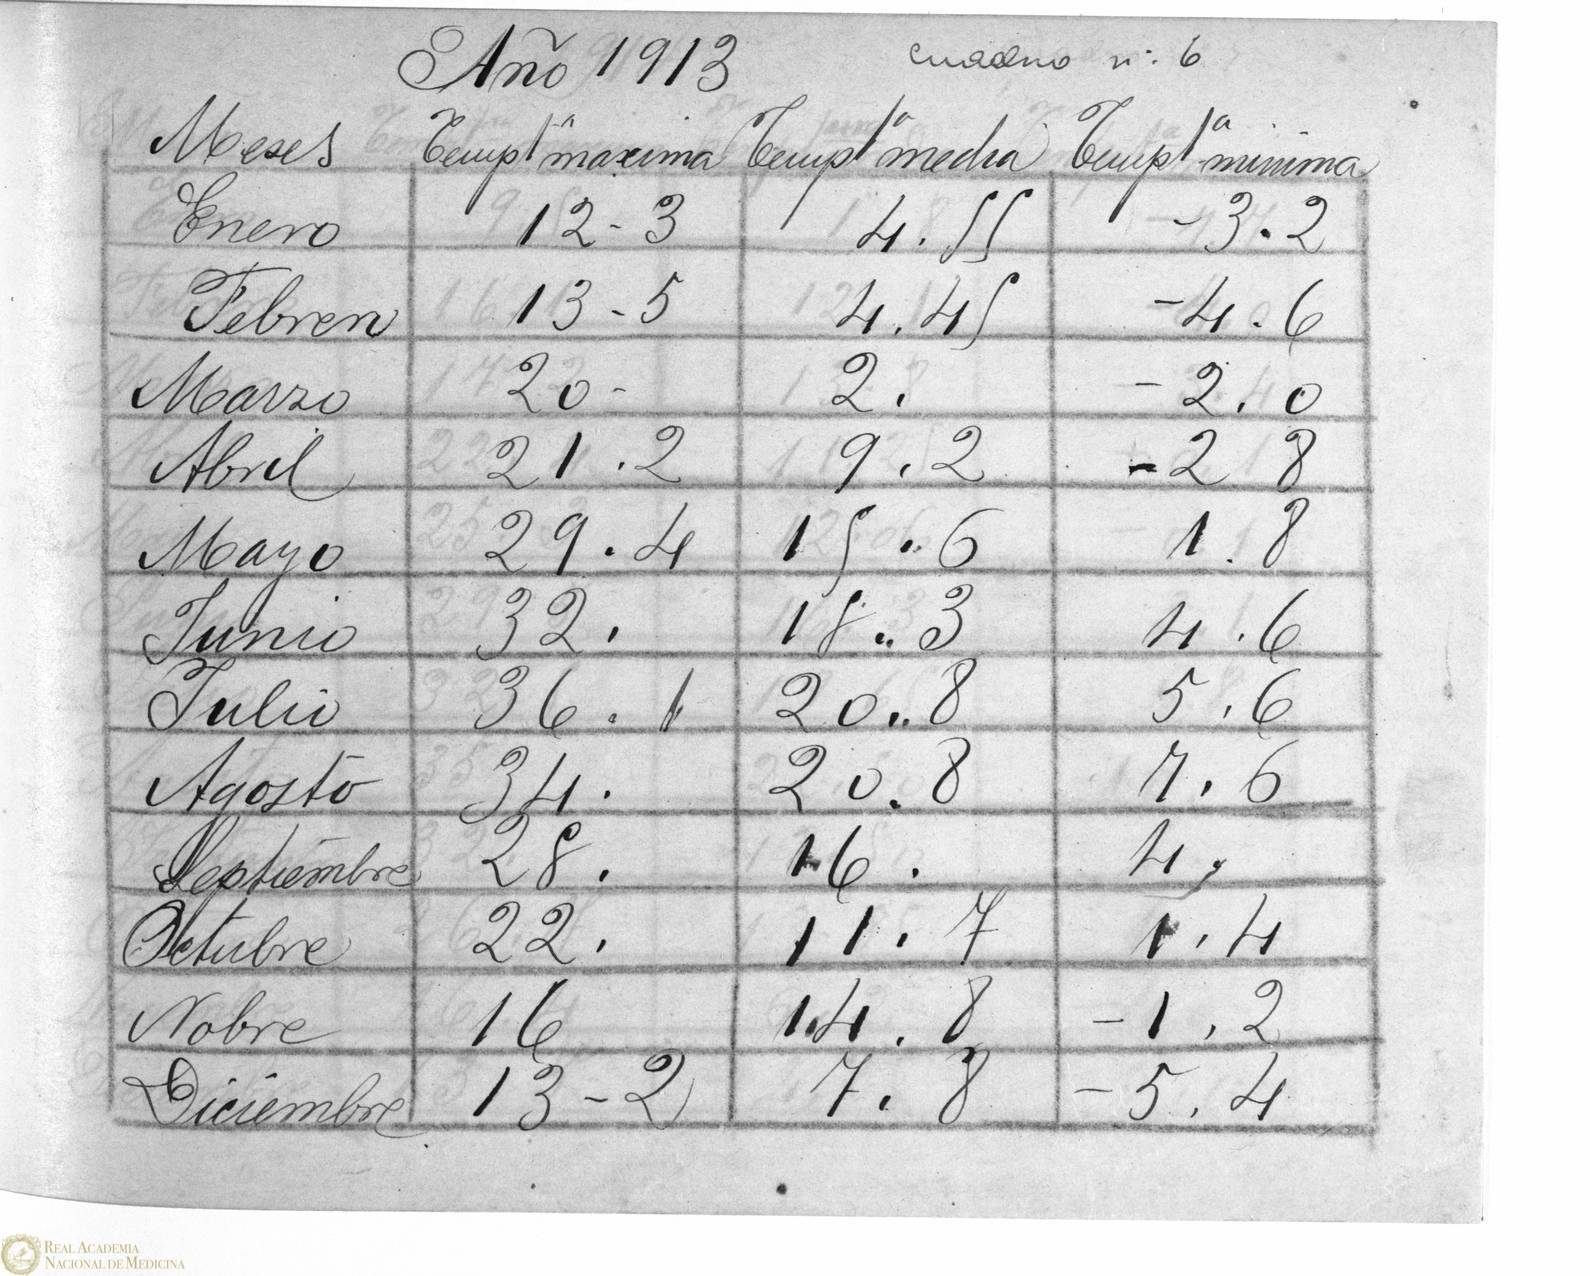 Año 1913 cuadro nº. 6
Meses Tempᵗᵃ maxima Tempᵗᵃ media Tempᵗᵃ minima
Enero 12-3 4.55 -3.2
Febrero 13-5 4.45 -4.6
Marzo 20- 2. -2.0
Abril 21.2 9.2 -2 8
Mayo 29.4 15.6 1.8
Junio 32. 18.3 4.6
Julio 36.1 20.8 5.6
Agosto 34. 20.8 7.6
Septiembre 28. 16. 4,
Octubre 22. 11.7 1.4
Nobre 16 14.8 -1.2
Diciembre 13-2 7.8 -5.4
REAL ACADEMIA
NACIONAL DE MEDICINA